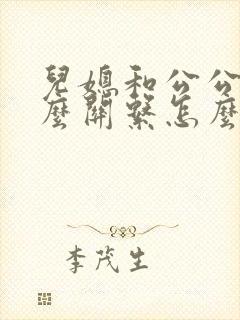 兒媳和公公
麼關繫怎麼
李茂生